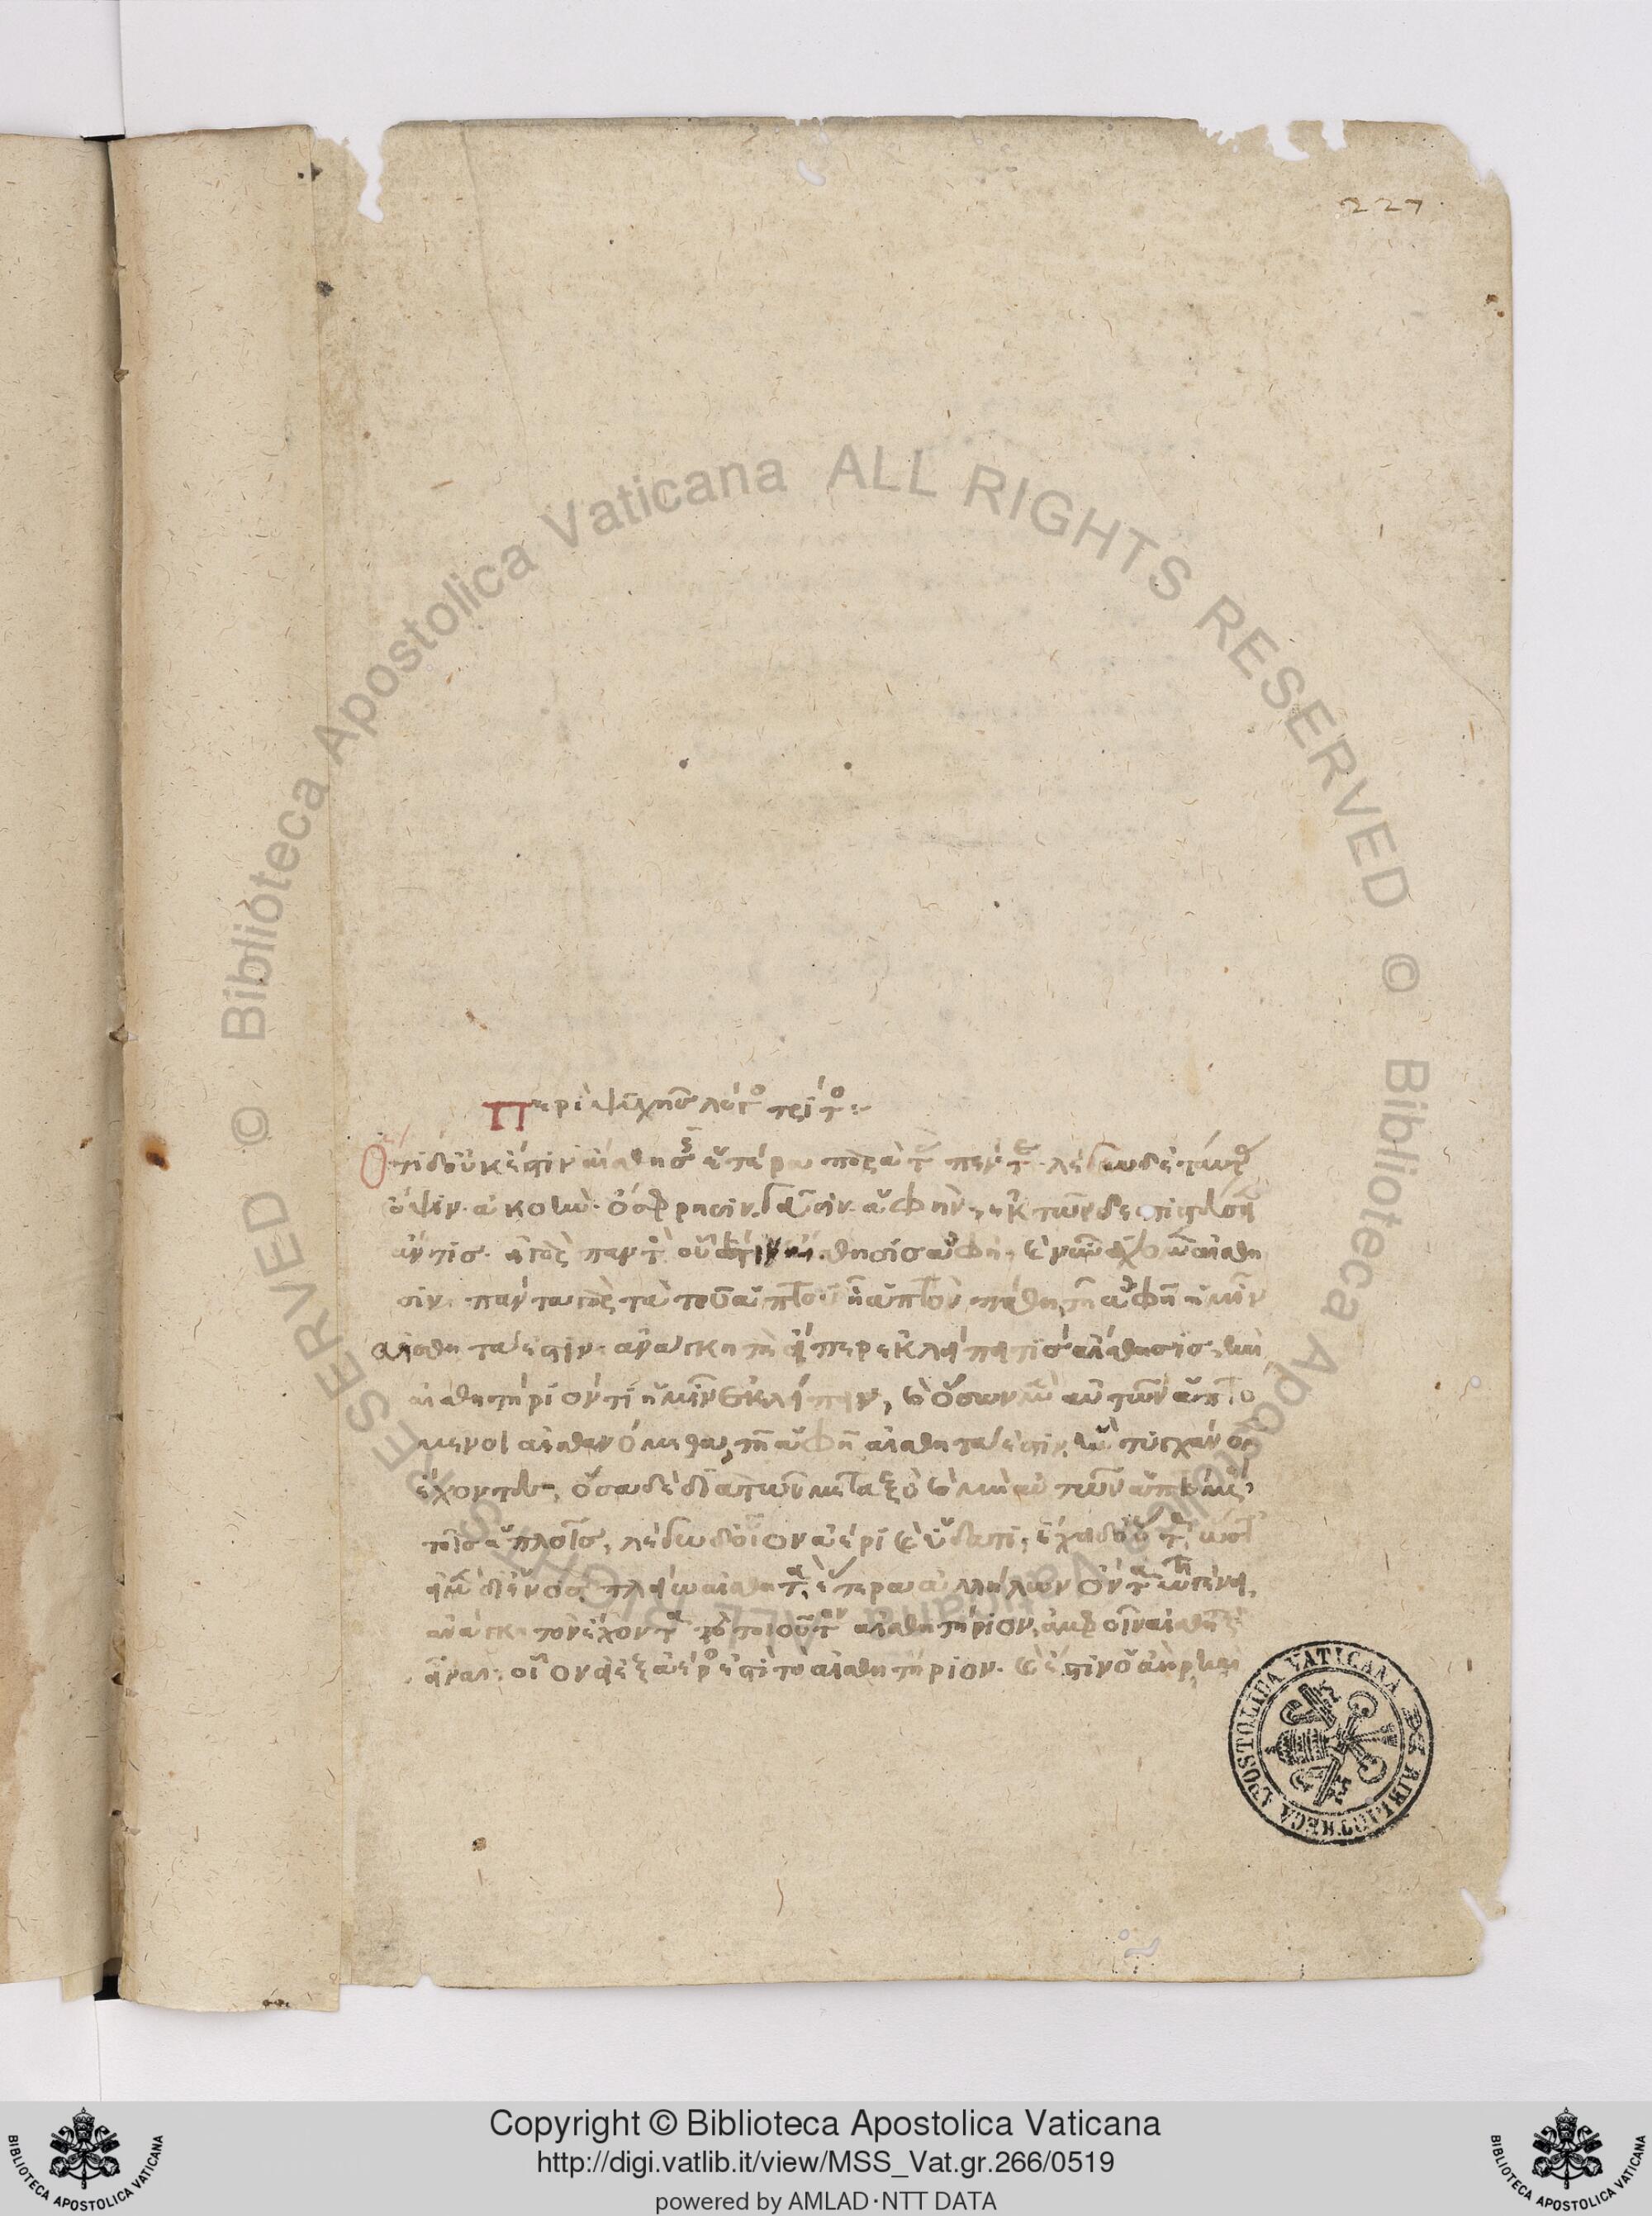 227
Περὶ ψυχῆς λόγος τρίτος:~
Ὅτι δ' οὐκ ἔστιν αἴσθησις ἑτέρα παρὰ τὰς πέντε· λέγω δὲ ταύτας
ὄψιν· ἀκοὴν· ὄσφρησιν· γεῦσιν· ἁφήν· ἐκ τῶνδε πιστεύσειεν
ἄν τις· εἰ γὰρ παντὸς οὗ ἐστὶν αἴσθησις ἁφὴ, καὶ νῦν ἔχομεν αἴσθη
σιν· πάντα γὰρ τὰ τοῦ ἁπτοῦ ἧ ἁπτὸν πάθη, τῆ ἁφῆ ἡμῖν
αἰσθητά ἐστιν· ἀνάγκη τὲ εἴπερ ἐκλείπει τίς αἴσθησις, καὶ
αἰσθητήριόν τι ἡμῖν ἐκλείπειν, καὶ ὅσων μὲν αὐτῶν ἁπτό
μενοι αἰσθανόμεθα, τῆ ἁφῆ αἰσθητά ἐστιν, ἣν τυγχάνομεν
ἔχοντες, ὅσα δὲ διὰ τῶν μεταξὺ καὶ μὴ αὐτῶν ἁπτόμενοι
τοῖς ἁπλοῖς, λέγω δ' οἷον ἀέρι καὶ ὕδατι, ἔχει δ' οὕτως, ὥστ'
εἰ μὲν δι' ἑνὸς πλείω αἰσθητὰ, ἕτερα ἀλλήλων ὄντα τῶ γένει,
ἀνάγκη τὸν ἔχοντα τὸ τοιοῦτον αἰσθητήριον, ἀμφοῖν αἰσθητικὸν
εἶναι· οἷον εἰ ἐξ ἀέρος ἐστὶ τὸ αἰσθητήριον· καὶ ἔστιν ὁ ἀὴρ, καὶ
BIBLIOTECA APOSTOLICA VATICANA
© Biblioteca Apostolica Vaticana ALL RIGHTS RESERVED © Biblioteca Apostolica Vaticana ALL RIGHTS RESERVED
Copyright © Biblioteca Apostolica Vaticana
http://digi.vatlib.it/view/MSS_Vat.gr.266/0519
powered by AMLAD·NTT DATA
BIBLIOTECA APOSTOLICA VATICANA
BIBLIOTECA APOSTOLICA VATICANA